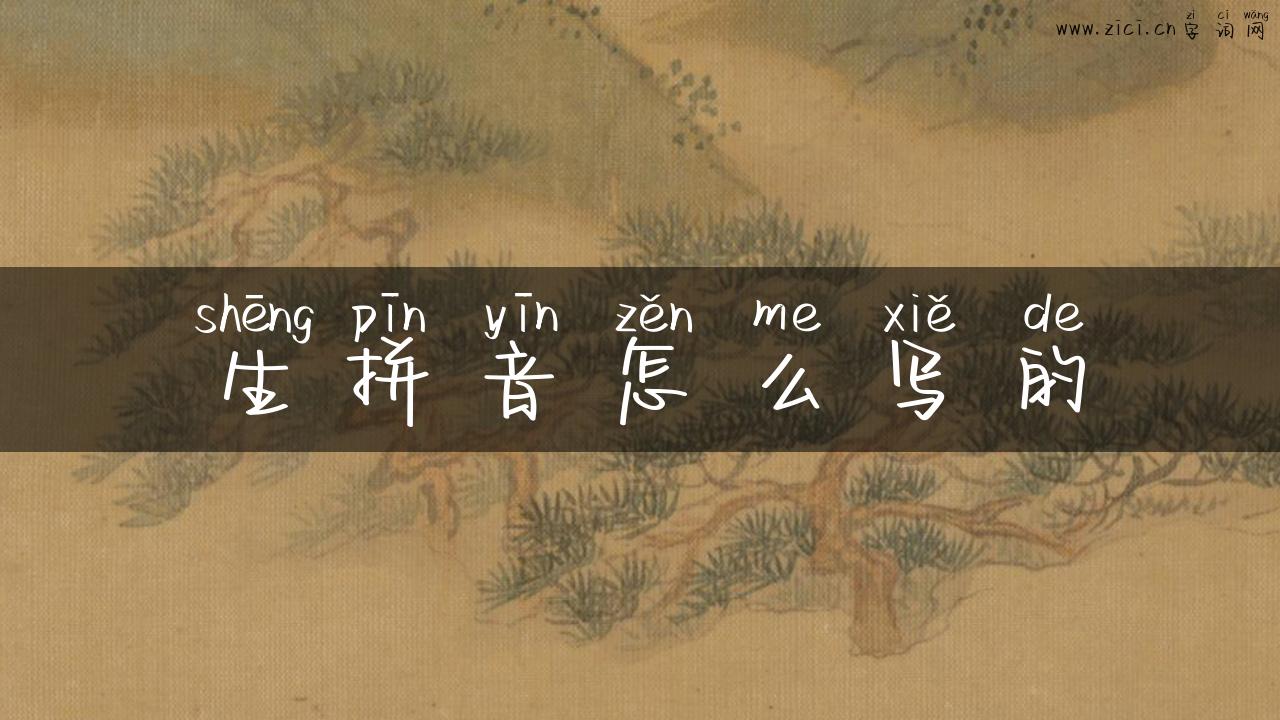 zì cí wǎng
www.zici.cn 字词网
shēng pīn yīn zěn me xiě de
生拼音怎么写的